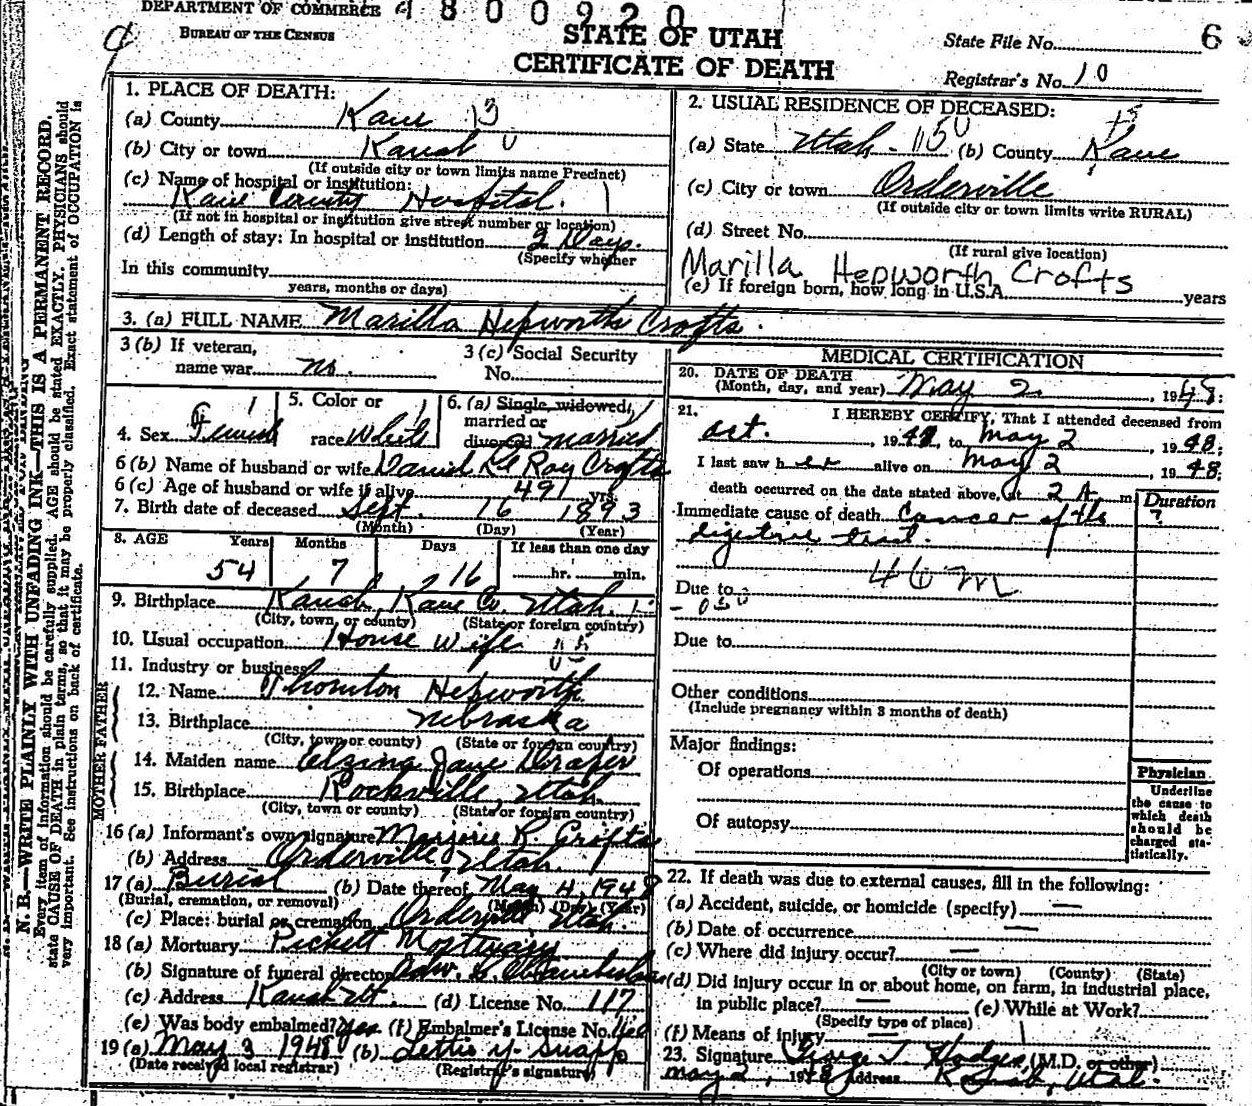 DEPARTMENT OF COMMERCE 4800920
BUREAU OF THE CENSUS
STATE OF UTAH
CERTIFICATE OF DEATH
State File No. 6
Registrar's No. 10
N. B.—WRITE PLAINLY WITH UNFADING INK—THIS IS A PERMANENT RECORD.
Every item of information should be carefully supplied. AGE should be stated EXACTLY. PHYSICIANS should
state CAUSE OF DEATH in plain terms, so that it may be properly classified. Exact statement of OCCUPATION is
very important. See instructions on back of certificate.
1. PLACE OF DEATH:
(a) County Kane 13
(b) City or town Kanab 0
(If outside city or town limits name Precinct)
(c) Name of hospital or institution:
Kane County Hospital. 1
(If not in hospital or institution give street number or location)
(d) Length of stay: In hospital or institution 2 Days.
(Specify whether
In this community
years, months or days)
2. USUAL RESIDENCE OF DECEASED:
(a) State Utah (b) County Kane
(c) City or town Orderville
(If outside city or town limits write RURAL)
(d) Street No.
(If rural give location)
Marilla Hepworth Crofts
(e) If foreign born, how long in U.S.A. years
3. (a) FULL NAME Marilla Hepworth Crofts.
3 (b) If veteran,
name war no.
3 (c) Social Security
No.
4. Sex Female 1
5. Color or
race White 1
6. (a) Single, widowed,
married or
divorced married
6 (b) Name of husband or wife Daniel Le Roy Crofts
6 (c) Age of husband or wife if alive 49 yrs.
7. Birth date of deceased Sept. 16 1893
(Month) (Day) (Year)
8. AGE Years Months Days If less than one day
54 7 16 hr. min.
9. Birthplace Kanab, Kane Co. Utah.
(City, town, or county) (State or foreign country)
10. Usual occupation House Wife
11. Industry or business
FATHER
12. Name Thornton Hepworth
13. Birthplace Nebraska
(City, town or county) (State or foreign country)
MOTHER
14. Maiden name Elzina Jane Draper
15. Birthplace Rockville, Utah.
(City, town or county) (State or foreign country)
16 (a) Informant's own signature Marjorie R. Crofts
(b) Address Orderville, Utah.
17 (a) Burial (b) Date thereof May 4, 1948
(Burial, cremation, or removal) (Month) (Day) (Year)
(c) Place: burial or cremation Orderville Utah.
18 (a) Mortuary Pickett Mortuary
(b) Signature of funeral director Chamberlain
(c) Address Kanab Ut. (d) License No. 117
(e) Was body embalmed? Yes (f) Embalmer's License No.
19 (a) May 3 1948 (b) Lettie Y. Swapp
(Date received local registrar) (Registrar's signature)
MEDICAL CERTIFICATION
20. DATE OF DEATH
(Month, day, and year) May 2, 1948:
21. I HEREBY CERTIFY, That I attended deceased from
Oct., 1947, to May 2, 1948;
I last saw her alive on May 2, 1948.
death occurred on the date stated above, at 2 A m.
Duration
Immediate cause of death Cancer of the ?
digestive tract.
46 m
Due to
- 050
Due to
Other conditions
(Include pregnancy within 3 months of death)
Major findings:
Of operations
Of autopsy
Physician
Underline
the cause to
which death
should be
charged sta-
tistically.
22. If death was due to external causes, fill in the following:
(a) Accident, suicide, or homicide (specify) —
(b) Date of occurrence —
(c) Where did injury occur? —
(City or town) (County) (State)
(d) Did injury occur in or about home, on farm, in industrial place,
in public place? — (e) While at Work?
(Specify type of place)
(f) Means of injury —
23. Signature George T Hodges (M.D. or other)
May 2, 1948 Address Kanab, Utah.